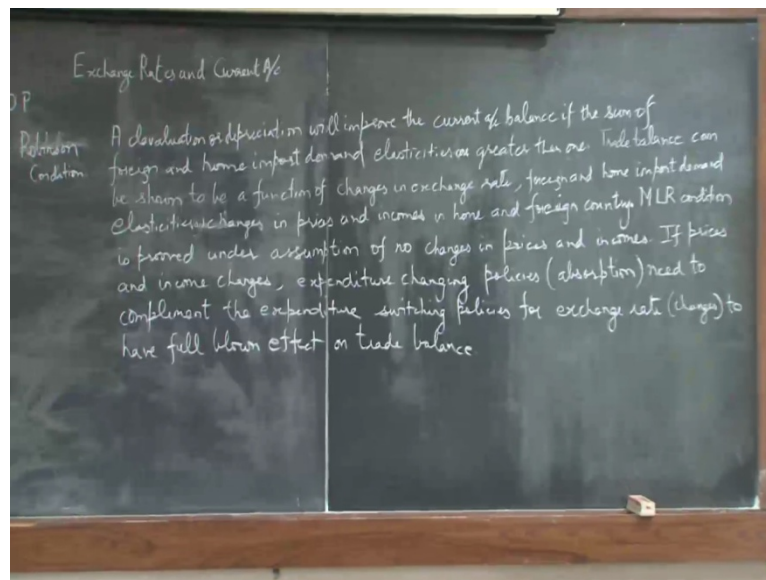 Exchange Rates and Current A/c
P
Robinson
Condition
A devaluation or depreciation will improve the current a/c balance if the sum of
foreign and home import demand elasticities are greater than one. Trade balance can
be shown to be a function of changes in exchange rate, foreign and home import demand
elasticities changes in prices and incomes in home and foreign country MLR condition
is proved under assumption of no changes in prices and incomes. If prices
and income changes, expenditure changing policies (absorption) need to
compliment the expenditure switching policies for exchange rate (changes) to
have full blown effect on trade balance